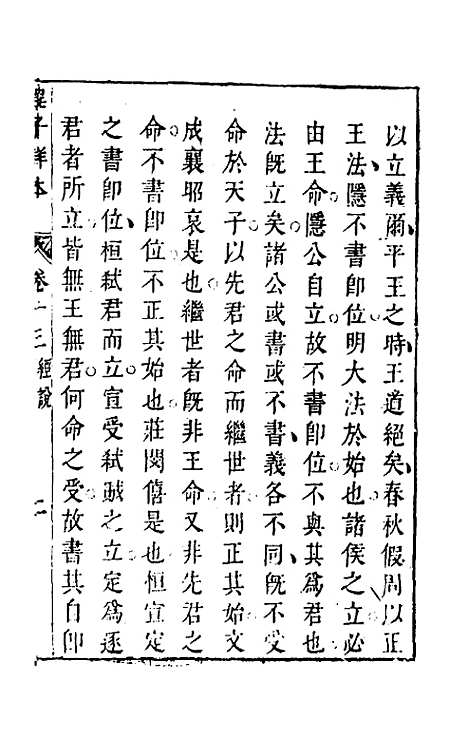 以立義爾平王之時王道絕矣春秋假周以正
王法隱不書卽位明大法於始也諸侯之立必
由王命隱公自立故不書卽位不與其爲君也
法旣立矣諸公或書或不書義各不同旣不受
命於天子以先君之命而繼世者則正其始文
成襄昭哀是也繼世者旣非王命又非先君之
命不書卽位不正其始也莊閔僖是也桓宣定
之書卽位桓弑君而立宣受弑賊之立定爲逐
君者所立皆無王無君何命之受故書其自卽
卷十三 經說